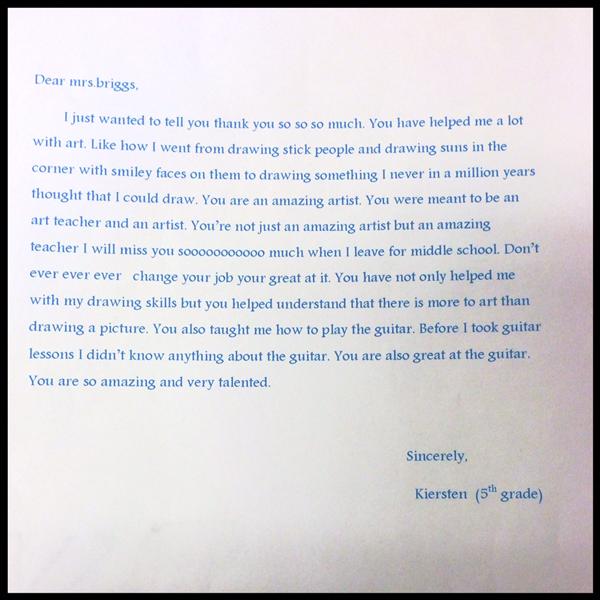 Dear mrs.briggs,
I just wanted to tell you thank you so so so much. You have helped me a lot
with art. Like how I went from drawing stick people and drawing suns in the
corner with smiley faces on them to drawing something I never in a million years
thought that I could draw. You are an amazing artist. You were meant to be an
art teacher and an artist. You're not just an amazing artist but an amazing
teacher I will miss you sooooooooooo much when I leave for middle school. Don't
ever ever ever change your job your great at it. You have not only helped me
with my drawing skills but you helped understand that there is more to art than
drawing a picture. You also taught me how to play the guitar. Before I took guitar
lessons I didn't know anything about the guitar. You are also great at the guitar.
You are so amazing and very talented.
Sincerely,
Kiersten (5th grade)